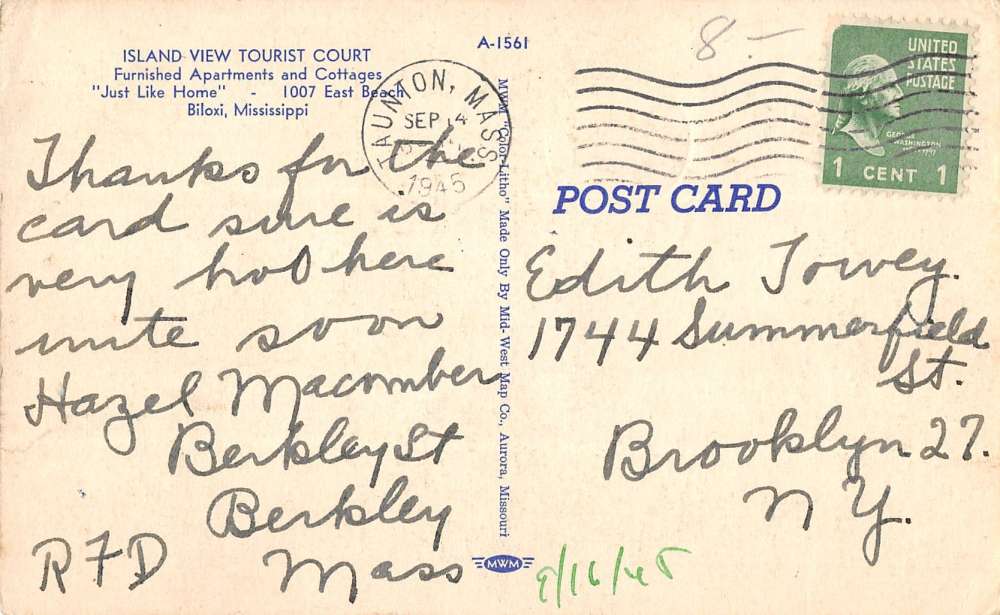 ISLAND VIEW TOURIST COURT
Furnished Apartments and Cottages
"Just Like Home" - 1007 East Beach
Biloxi, Mississippi
A-1561
TAUNTON, MASS
SEP 14
1945
8-
UNITED
STATES
POSTAGE
GEORGE
WASHINGTON
1 CENT 1
POST CARD
Thanks for the
card sure is
very hot here
write soon
Hazel Macomber
Berkley St
Berkley
R F D Mass
MWM "Color-Litho" Made Only By Mid-West Map Co., Aurora, Missouri
MWM
Edith Towey.
1744 Summerfield
St.
Brooklyn 27.
N Y.
9/16/45